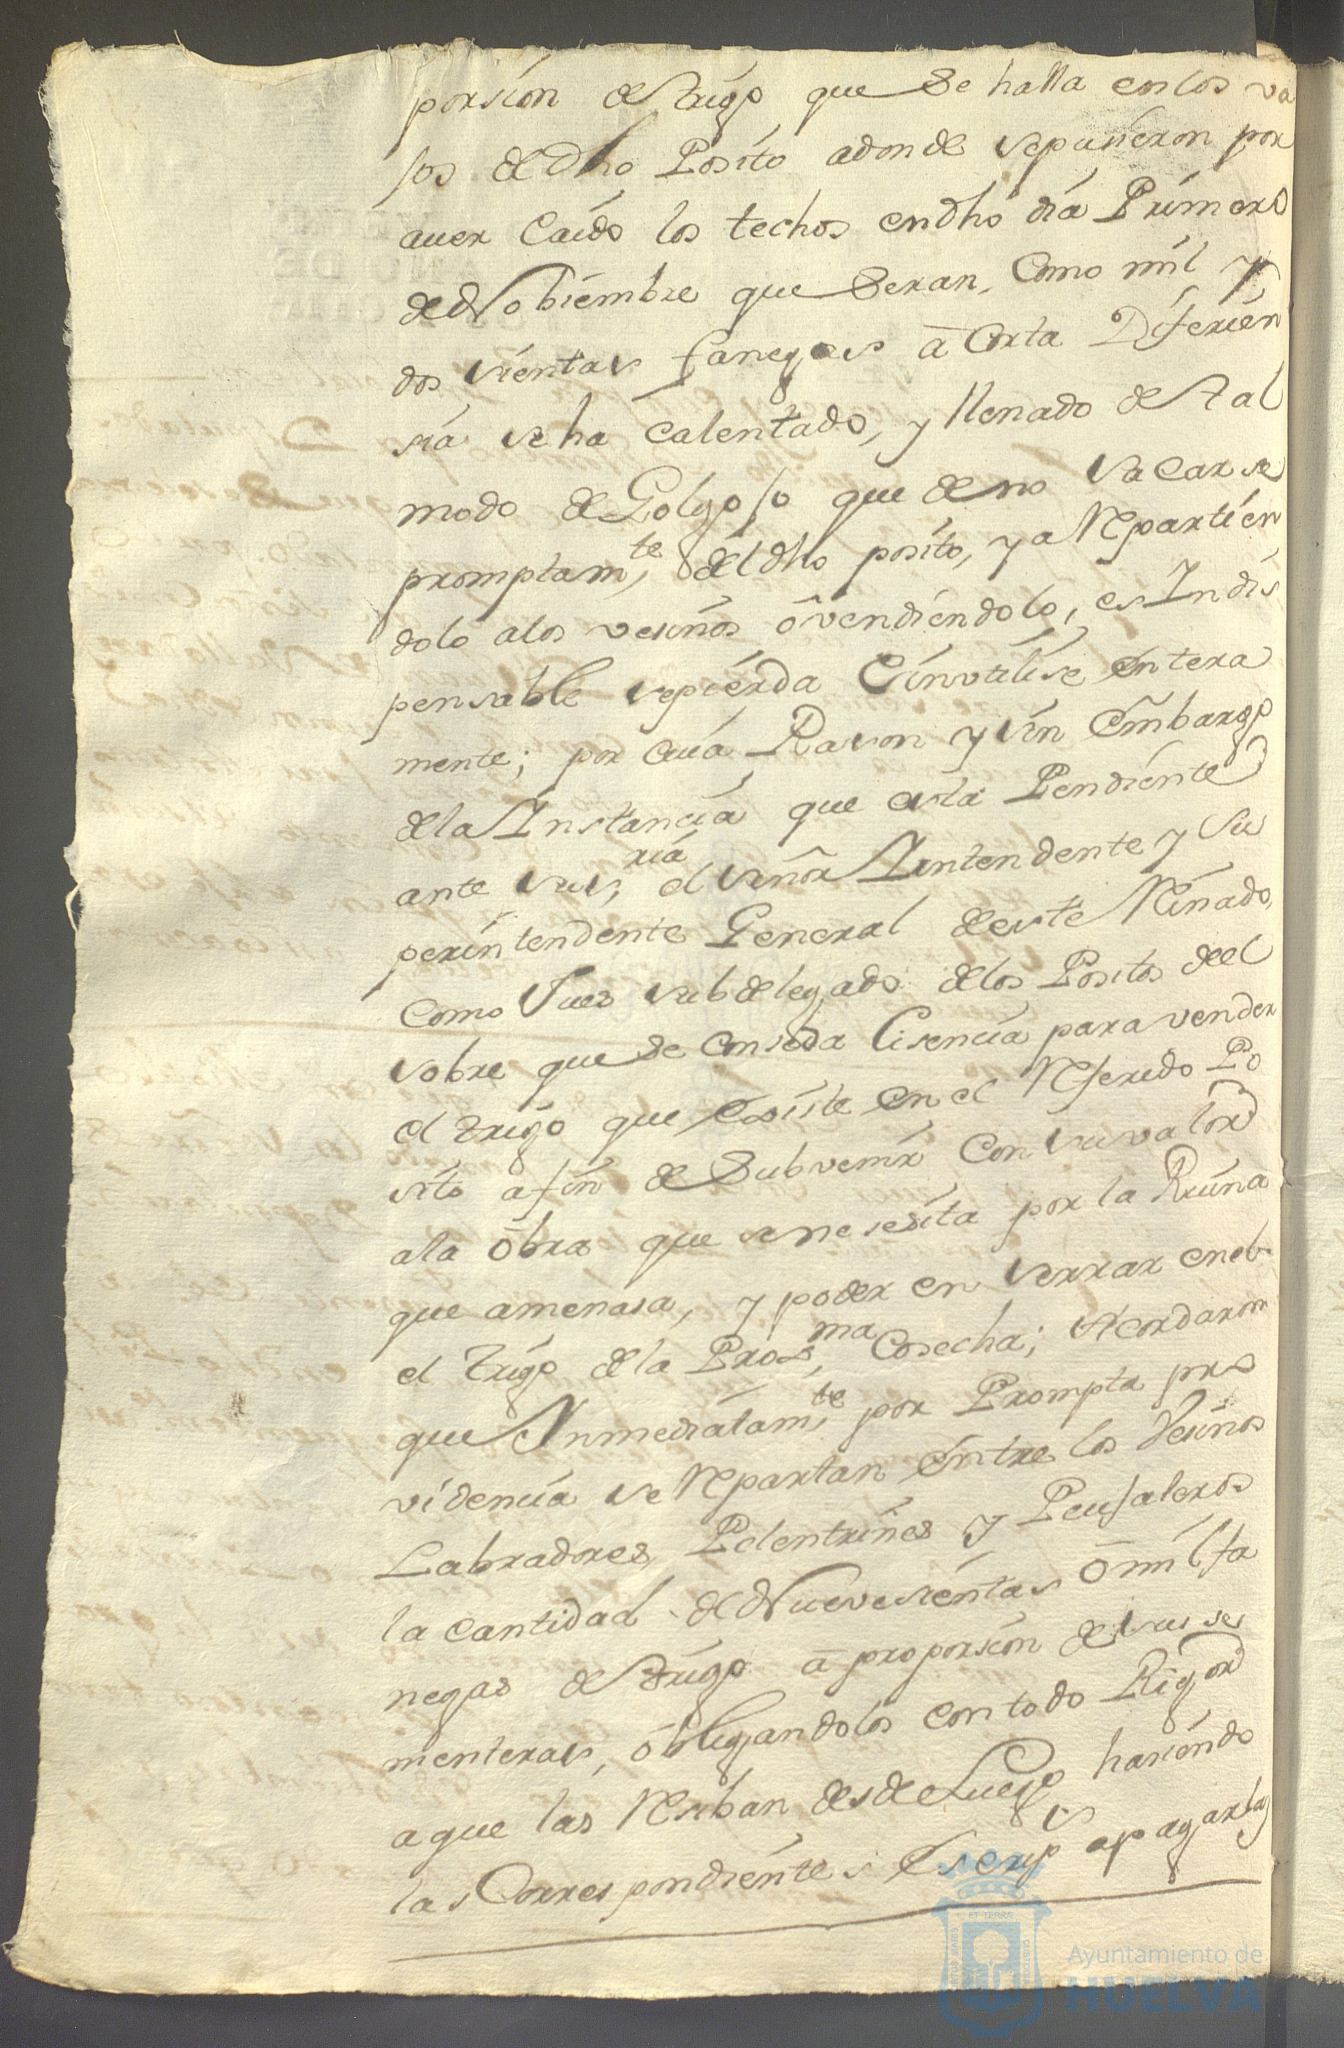 porsion de trigo que se halla en los va
sos de dho Posito adonde se pusieron por
auer Caido los techos en dho dia Primero
de Nobiembre que seran, Como mil y
dos sientas fanegas â Corta Diferien
sia se ha calentado, y llenado de tal
modo de Golgoso que de no sacarse
promptamte, del dho posito, y a Repartien
dolo a los vesinos ô vendiendolo, es Indis
pensable se pierda é inutilise entera
mente; por cuia Rason y sin embargo
de la Instancia que esta Pendiente
ante su sria, el señor Intendente y Su
perintendente General deste Reinado,
Como Jues subdelegado de los Positos del
sobre que se conseda lisencia para vender
el trigo que existe en el Referido Po
sito a fin de Subvenir Con su valor
a la ôbra que se nesesita por la Ruina
que amenasa, y poder en serrar en el
el trigo de la Proxma, Cosecha; Acordaron
que Inmediatamte, por Prompta pro
videncia se Repartan entre los Vesinos
Labradores, Pelentrines y Peujaleros
la cantidad de Nuevesientas ô mil fa
negas de trigo â proporsion de sus se
menteras, óbligandolos con todo Rigor
a que las Resiban desde Luego hasiendo
las Correspondientes Escrips a pagarlas
ET TERRÆ
Ayuntamiento de
HUELVA